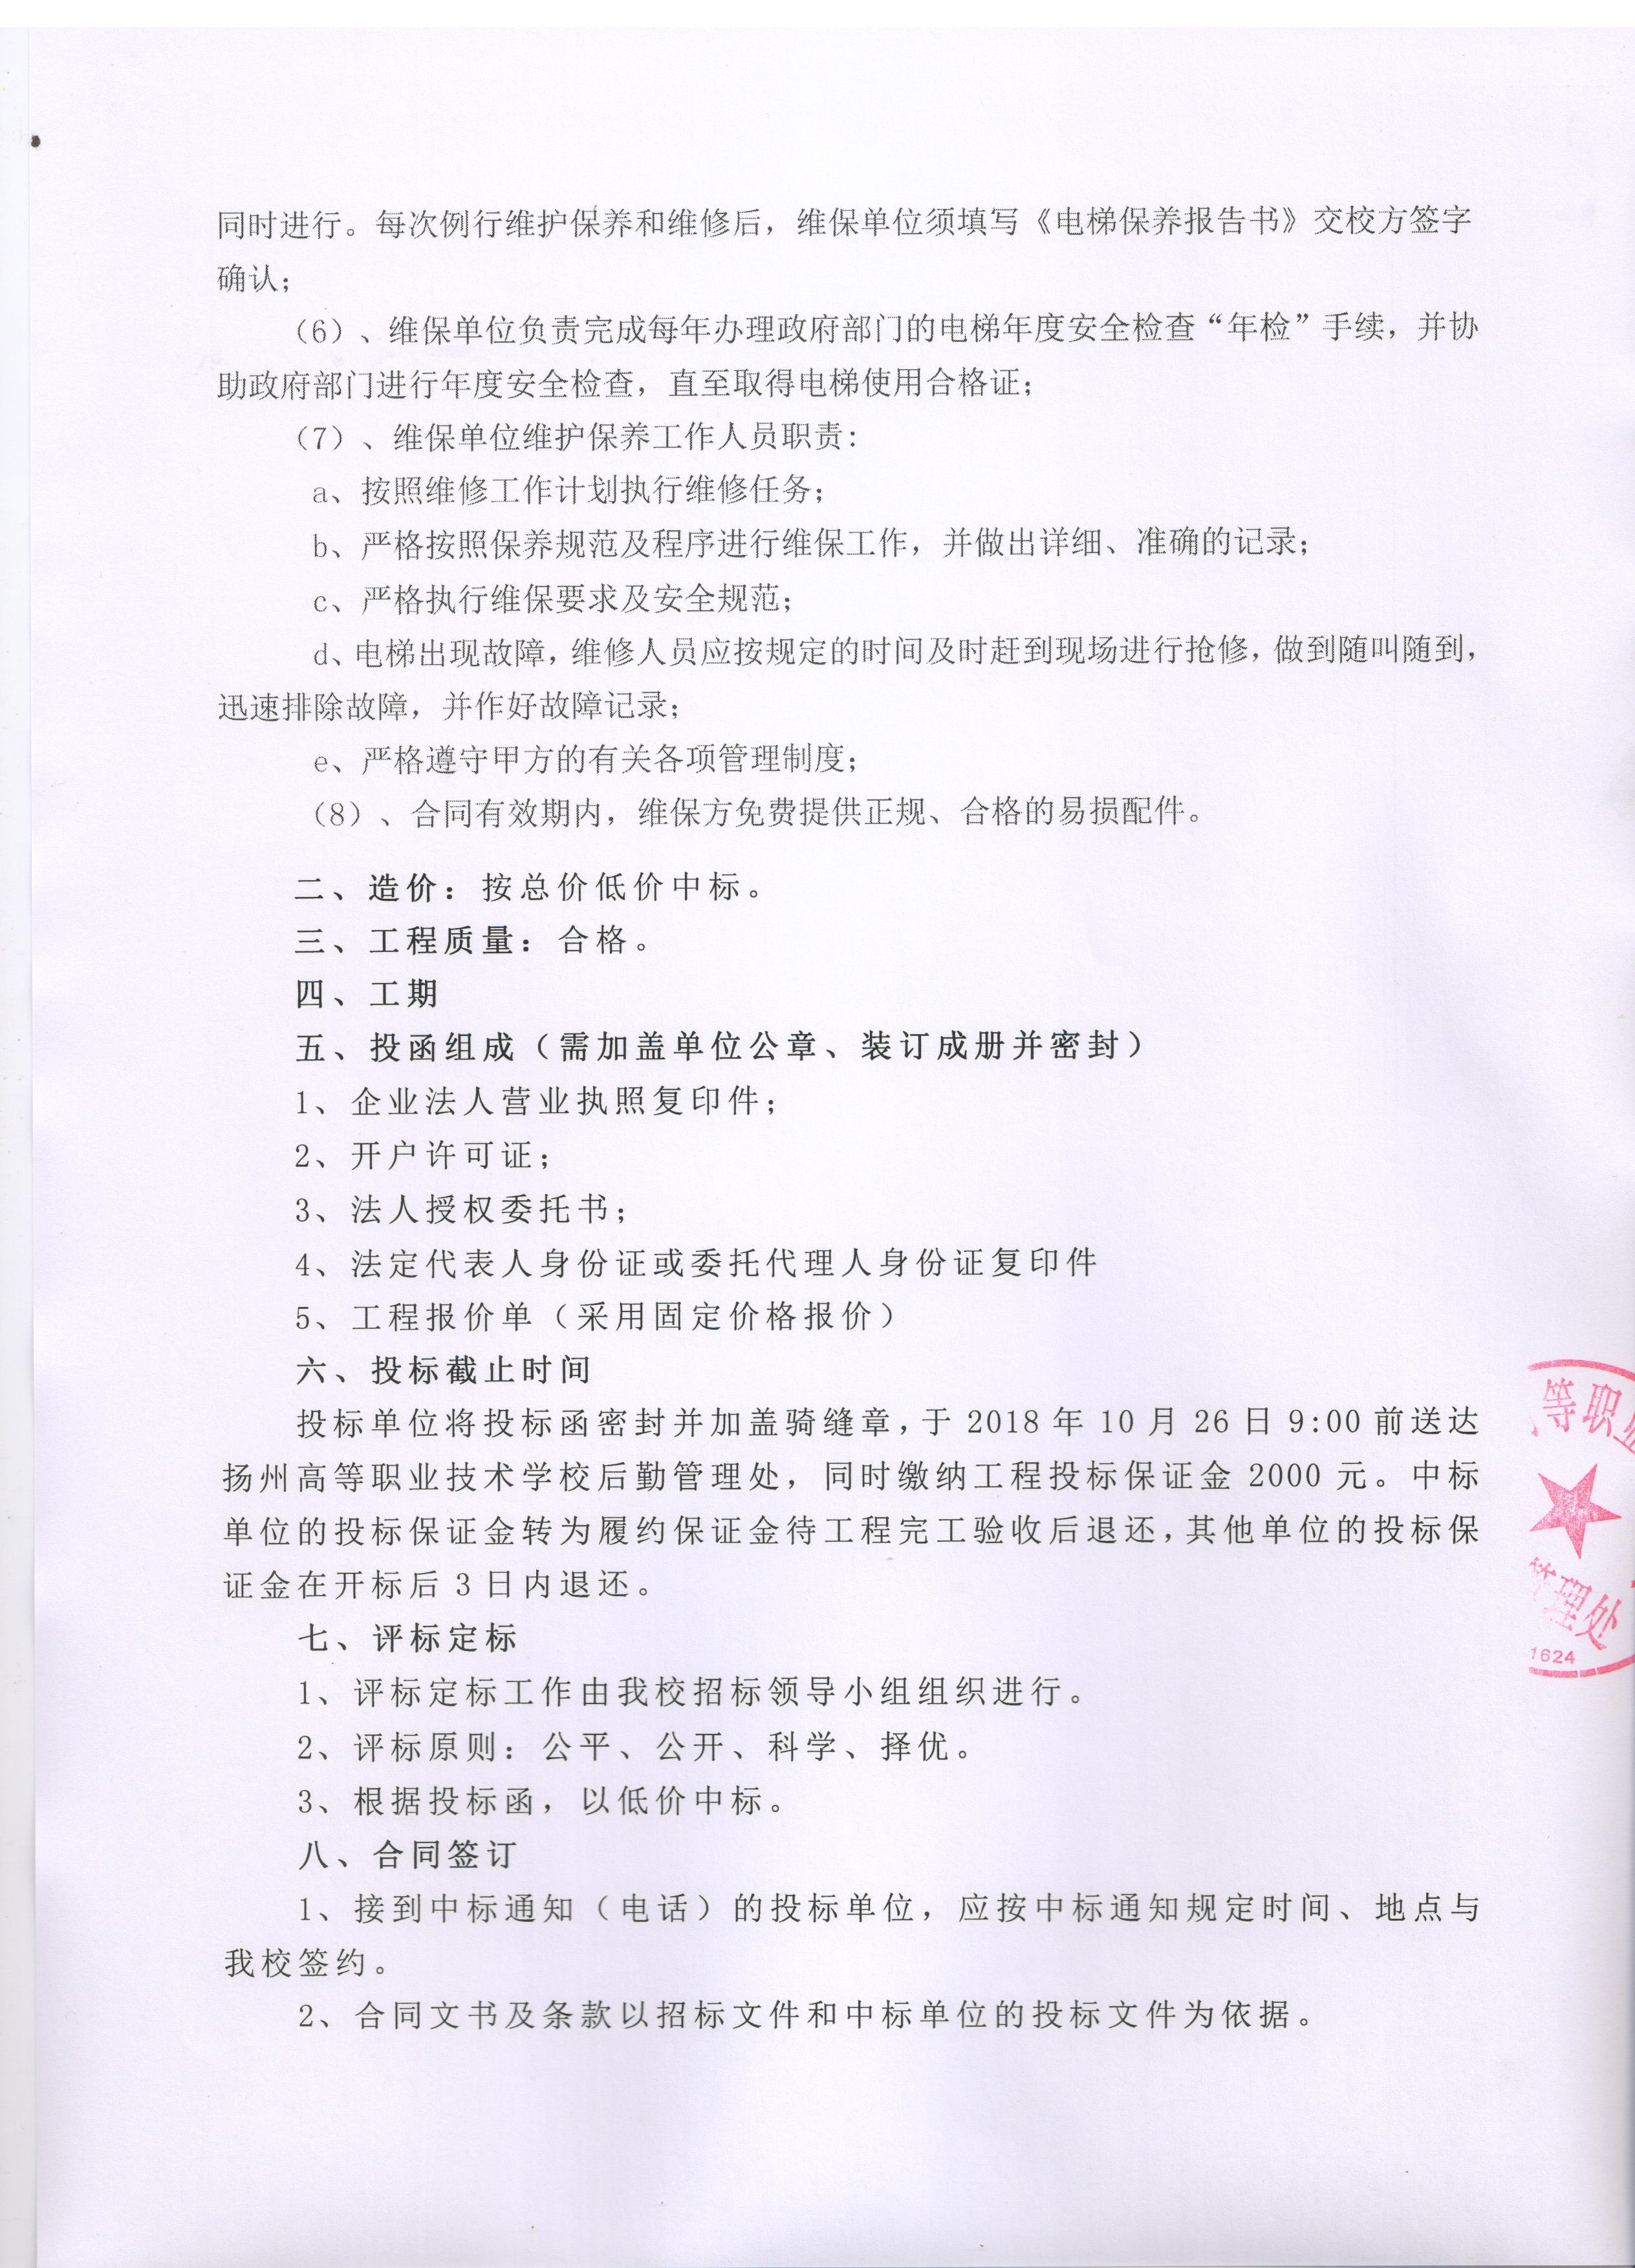 同时进行。每次例行维护保养和维修后，维保单位须填写《电梯保养报告书》交校方签字
确认；
（6）、维保单位负责完成每年办理政府部门的电梯年度安全检查“年检”手续，并协
助政府部门进行年度安全检查，直至取得电梯使用合格证；
（7）、维保单位维护保养工作人员职责：
a、按照维修工作计划执行维修任务；
b、严格按照保养规范及程序进行维保工作，并做出详细、准确的记录；
c、严格执行维保要求及安全规范；
d、电梯出现故障，维修人员应按规定的时间及时赶到现场进行抢修，做到随叫随到，
迅速排除故障，并作好故障记录；
e、严格遵守甲方的有关各项管理制度；
（8）、合同有效期内，维保方免费提供正规、合格的易损配件。
二、造价：按总价低价中标。
三、工程质量：合格。
四、工期
五、投函组成（需加盖单位公章、装订成册并密封）
1、企业法人营业执照复印件；
2、开户许可证；
3、法人授权委托书；
4、法定代表人身份证或委托代理人身份证复印件
5、工程报价单（采用固定价格报价）
六、投标截止时间
投标单位将投标函密封并加盖骑缝章，于 2018 年 10 月 26 日 9:00 前送达
扬州高等职业技术学校后勤管理处，同时缴纳工程投标保证金 2000 元。中标
单位的投标保证金转为履约保证金待工程完工验收后退还，其他单位的投标保
证金在开标后 3 日内退还。
七、评标定标
1、评标定标工作由我校招标领导小组组织进行。
2、评标原则：公平、公开、科学、择优。
3、根据投标函，以低价中标。
八、合同签订
1、接到中标通知（电话）的投标单位，应按中标通知规定时间、地点与
我校签约。
2、合同文书及条款以招标文件和中标单位的投标文件为依据。
等职业
理处
1624